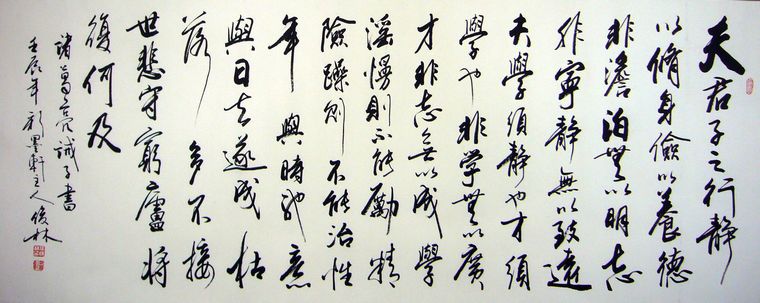 夫君子之行靜
以脩身儉以養德
非澹泊無以明志
非寧靜無以致遠
夫學須靜也才須
學也非学無以廣
才非志無以成學
淫慢則不能勵精
險躁則不能治性
年與時馳意
與日去遂成枯
落多不接
世悲守窮廬將
復何及
諸葛亮誡子書
壬辰年墨軒主人俊林